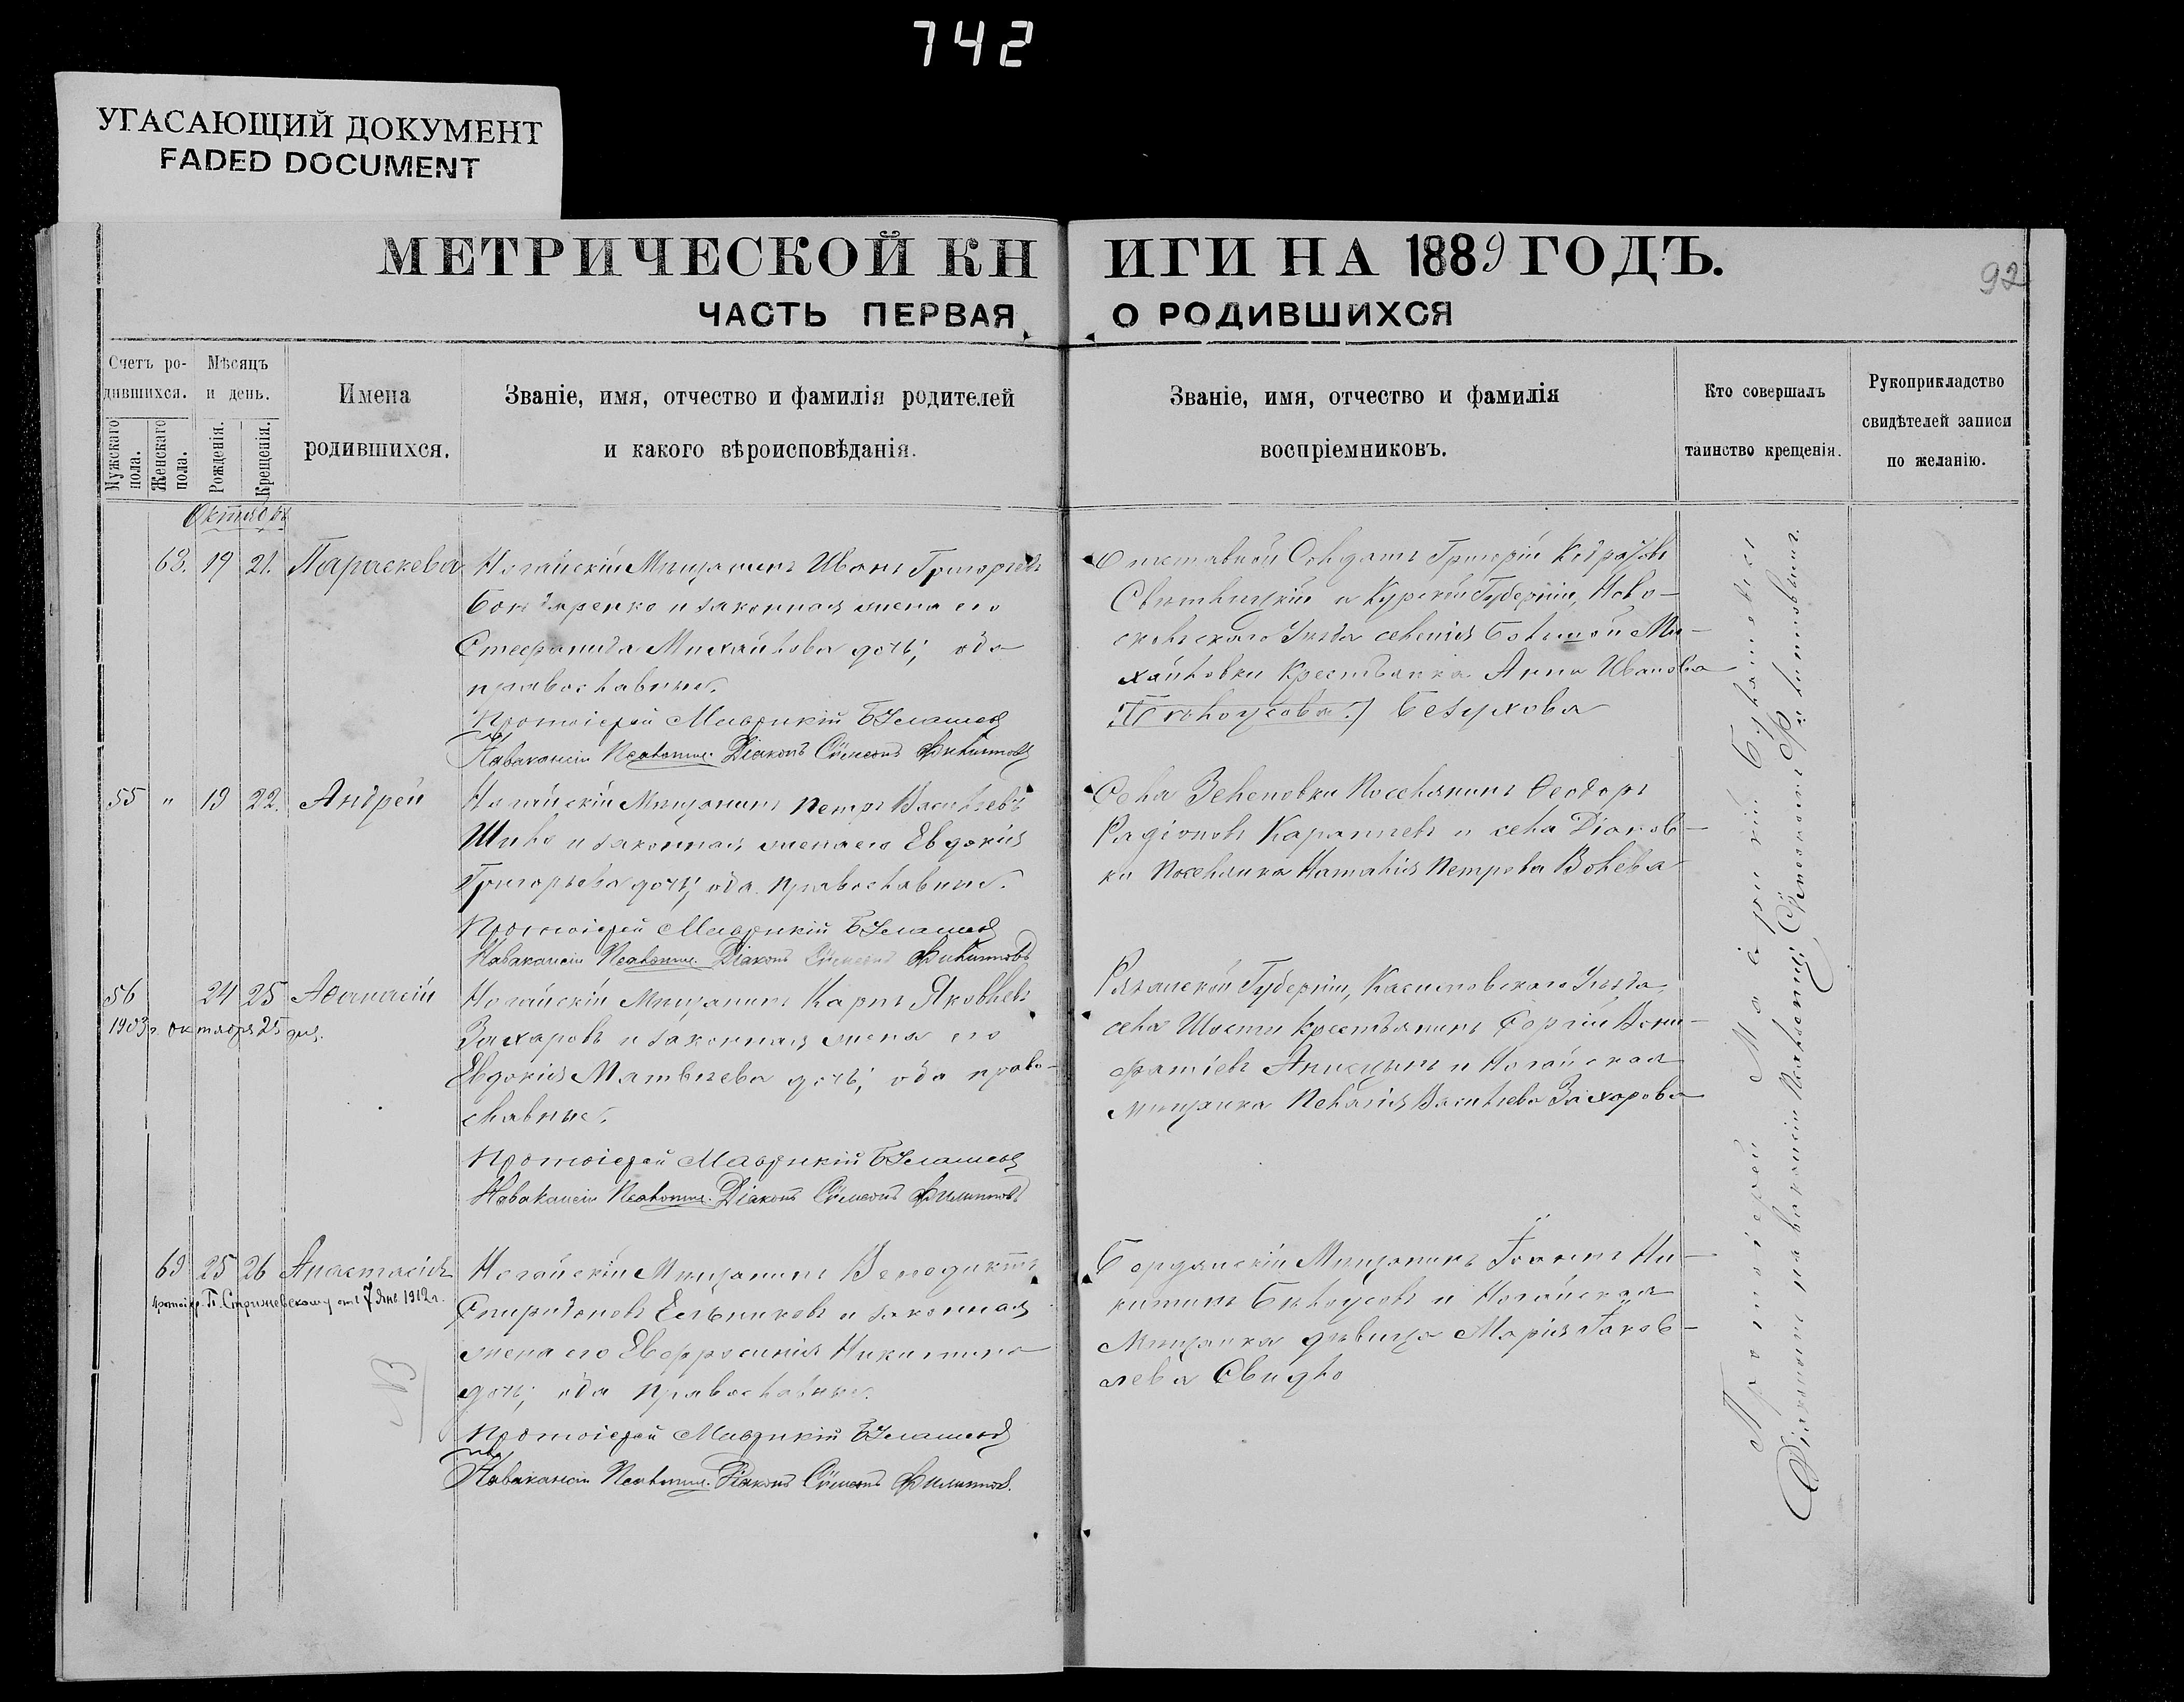 742
УГАСАЮЩИЙ ДОКУМЕНТ
FADED DOCUMENT
МЕТРИЧЕСКОЙ КНИГИ НА 1889 ГОДЪ.
92
ЧАСТЬ ПЕРВАЯ О РОДИВШИХСЯ
Счетъ родившихся.
Мужскаго пола.
Женскаго пола.
Мѣсяцъ и день.
Рожденія.
Крещенія.
Имена
родившихся.
Званіе, имя, отчество и фамилія родителей
и какого вѣроисповѣданія.
Званіе, имя, отчество и фамилія
воспріемниковъ.
Кто совершалъ
таинство крещенія.
Рукоприкладство
свидѣтелей записи
по желанію.
Октябрь
68. 19 21. Параскева
Ногайскій Мѣщанинъ Иванъ Григорьевъ
Бондаренко и законная жена его
Стефанида Михайлова дочь; оба
православные.
Протоіерей Маврикій
На вакансіи Псаломщ. Діаконъ Сѵмеонъ Филипповъ
Отставной Солдатъ Григорій
и Курской Губерніи, Ново-
скольскаго Уѣзда селенія Большой Ми-
хайловки Крестьянка Анна Иванова
Безухова
55 " 19 22. Андрей
Ногайскій Мѣщанинъ Петръ Васильевъ
Шило и законная жена его Евдокія
Григорьева дочь; оба православные.
Протоіерей Маврикій
На вакансіи Псаломщ. Діаконъ Сѵмеонъ Филипповъ
Села Зеленовки Поселянинъ Ѳеодоръ
Радіоновъ и села Діановки
Поселянка Наталія Петрова Волева
56 24 25 Аѳанасій
1903 г. октября 25 дня.
Ногайскій Мѣщанинъ Карпъ Яковлевъ
Захаровъ и законная жена его
Евдокія Матвѣева дочь; оба право-
славные.
Протоіерей Маврикій
На вакансіи Псаломщ. Діаконъ Сѵмеонъ Филипповъ
Рязанской Губерніи, Касимовскаго Уѣзда
села Шости Крестьянинъ Сергій Вони-
фатіевъ и Ногайская
мѣщанка Пелагія Васильева Захарова
69 25 26 Анастасія
П. Стрижевскому отъ 7 Янв. 1912 г.
Ногайскій Мѣщанинъ Венедиктъ
Спиридоновъ Ельниковъ и законная
жена его Евфросинія Никитина
дочь; оба православные.
Протоіерей Маврикій
На вакансіи Псаломщ. Діаконъ Сѵмеонъ Филипповъ.
Бердянскій Мѣщанинъ Іоаннъ Ни-
китинъ Бѣлоусовъ и Ногайская
Мѣщанка дѣвица Марія Іаков-
лева Свидло
Протоіерей Маврикій
Діаконъ на вакансіи Псаломщ. Сѵмеонъ Филипповъ.